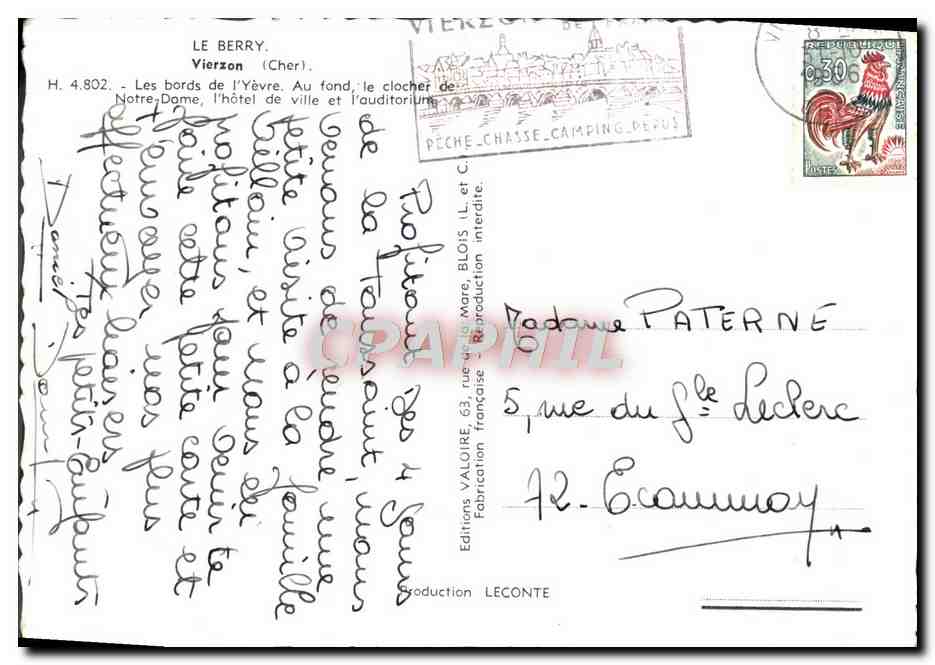 LE BERRY.
Vierzon (Cher).
H. 4.802. - Les bords de l'Yèvre. Au fond, le clocher de
Notre-Dame, l'hôtel de ville et l'auditorium
VIERZON
PÊCHE_CHASSE_CAMPING_REPOS
REPUBLIQUE FRANÇAISE
0,30
POSTES
Profitant des 4 jours
de la Toussaint, nous
venons de rendre une
petite visite à la famille
Billan, et nous en
profitons pour venir te
faire cette petite carte et
t'envoyer nos plus
affectueux baisers
Tes petits-Enfants
Daniel
Editions VALOIRE, 63, rue de la Mare, BLOIS (L. et C.
Fabrication française - Reproduction interdite.
CPAPHIL
Madame PATERNE
5, rue du Gle Leclerc
72 - Ecommoy
Production LECONTE